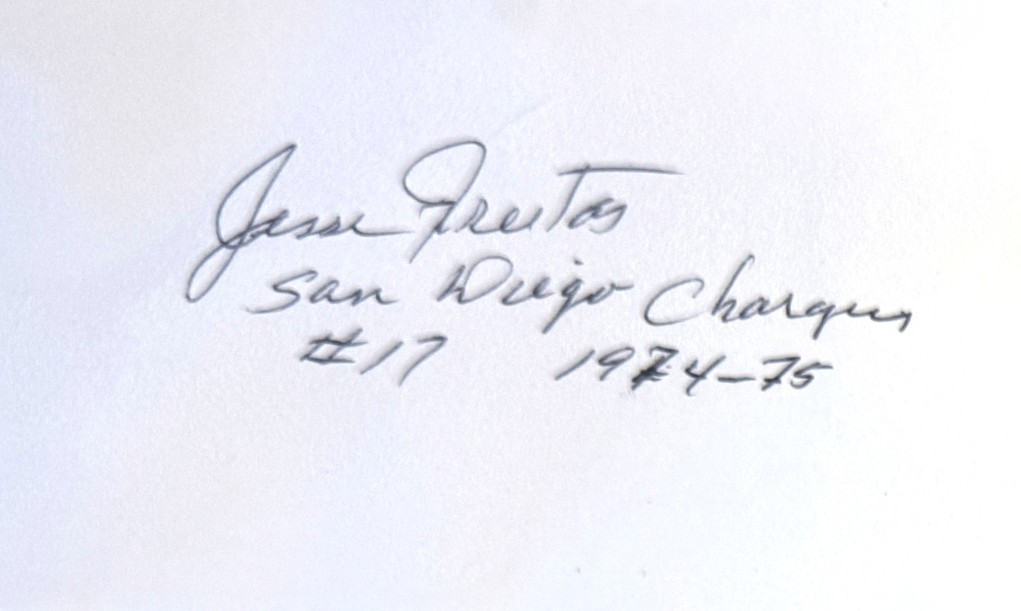 Jesse Freitas
San Diego Chargers
#17 1974-75